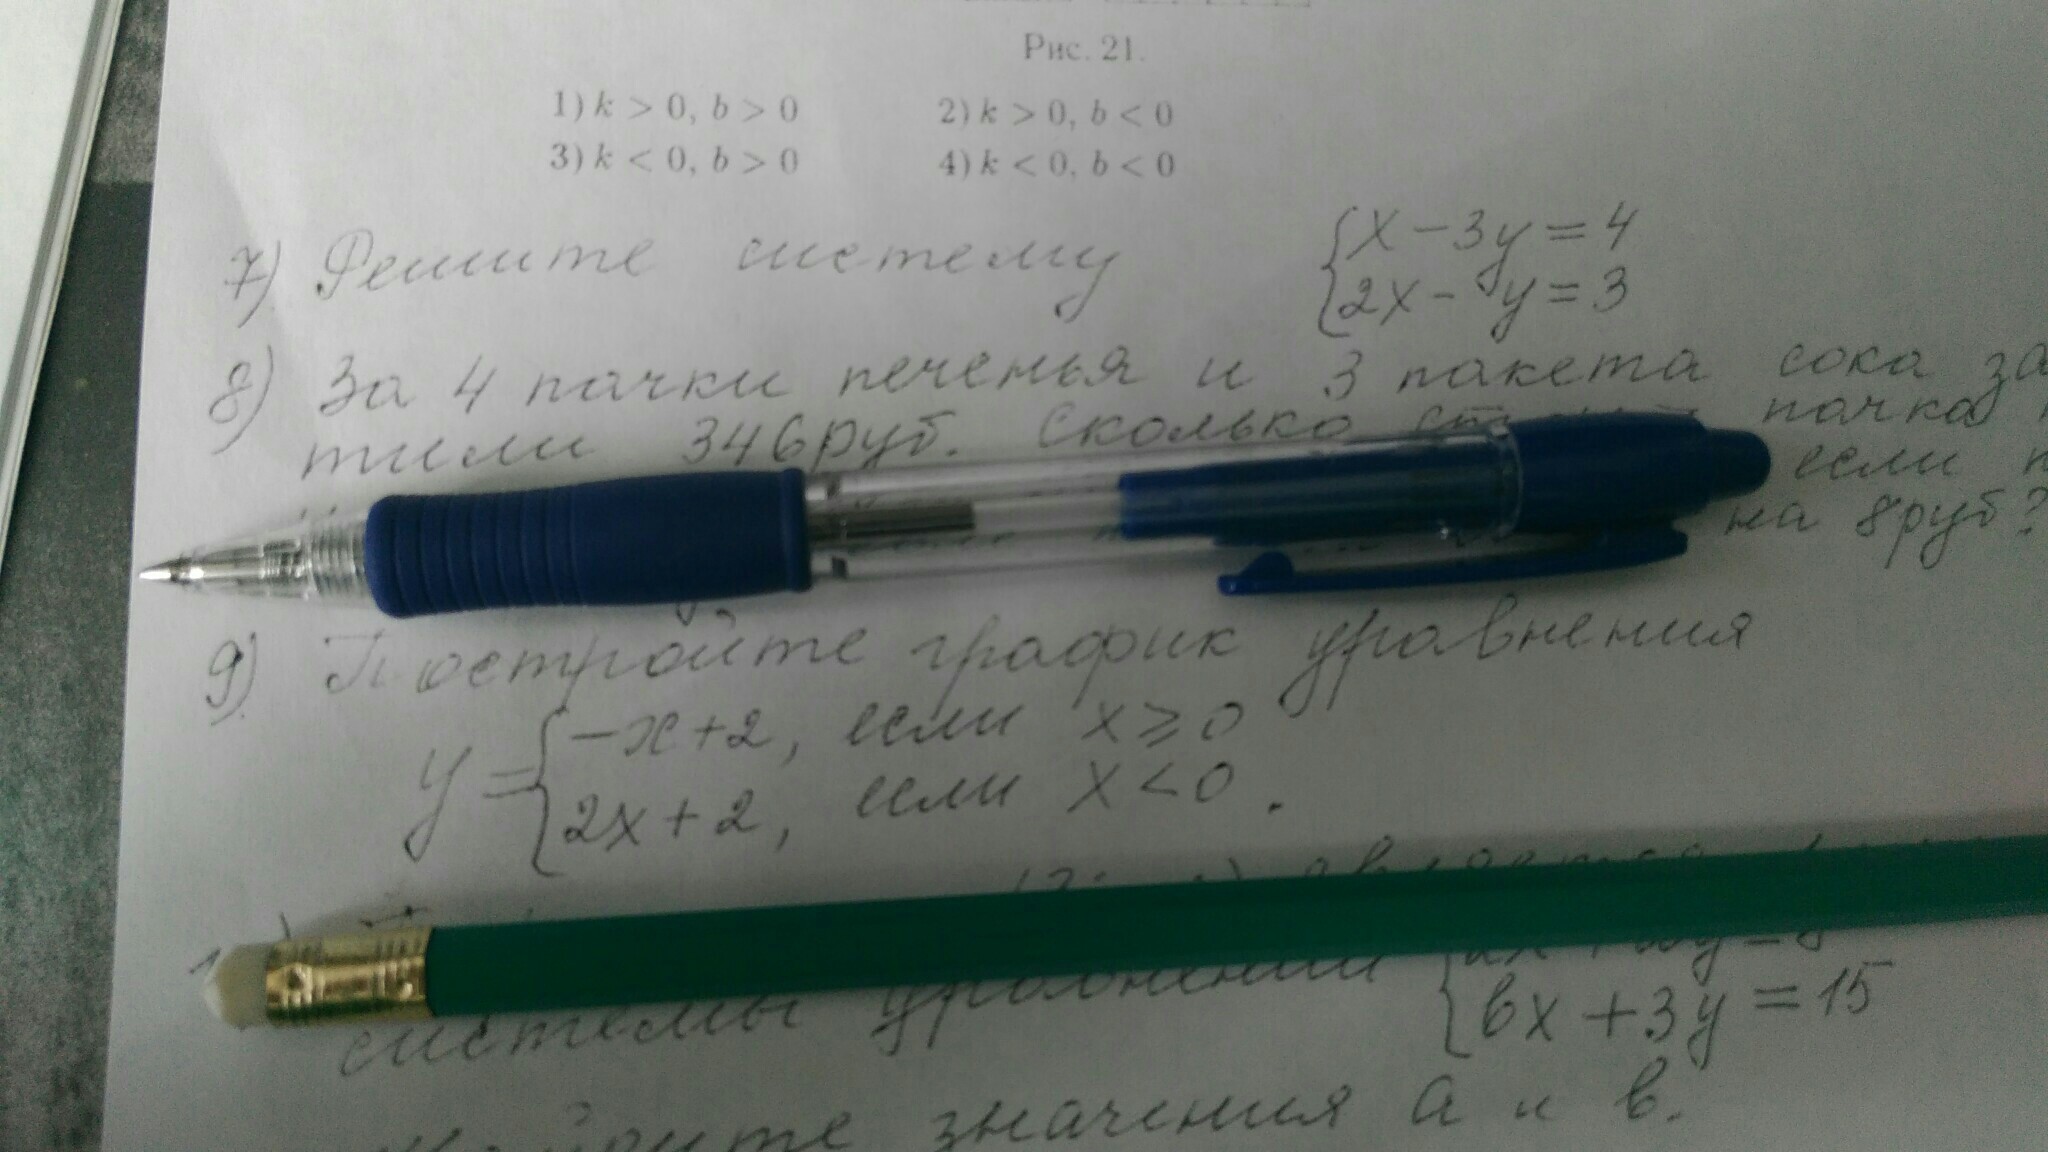 Рис. 21.
1) k > 0, b > 0 2) k > 0, b < 0
3) k < 0, b > 0 4) k < 0, b < 0
7) Решите систему { x - 3y = 4
2x - y = 3
8) За 4 пачки печенья и 3 пакета сока за
тили 346 руб. Сколько пачка
если
на 8 руб?
9) Постройте график уравнения
y = { -x+2, если x ≥ 0
2x+2, если x < 0.
является
системы уравнений {
bx + 3y = 15
значения a и b.